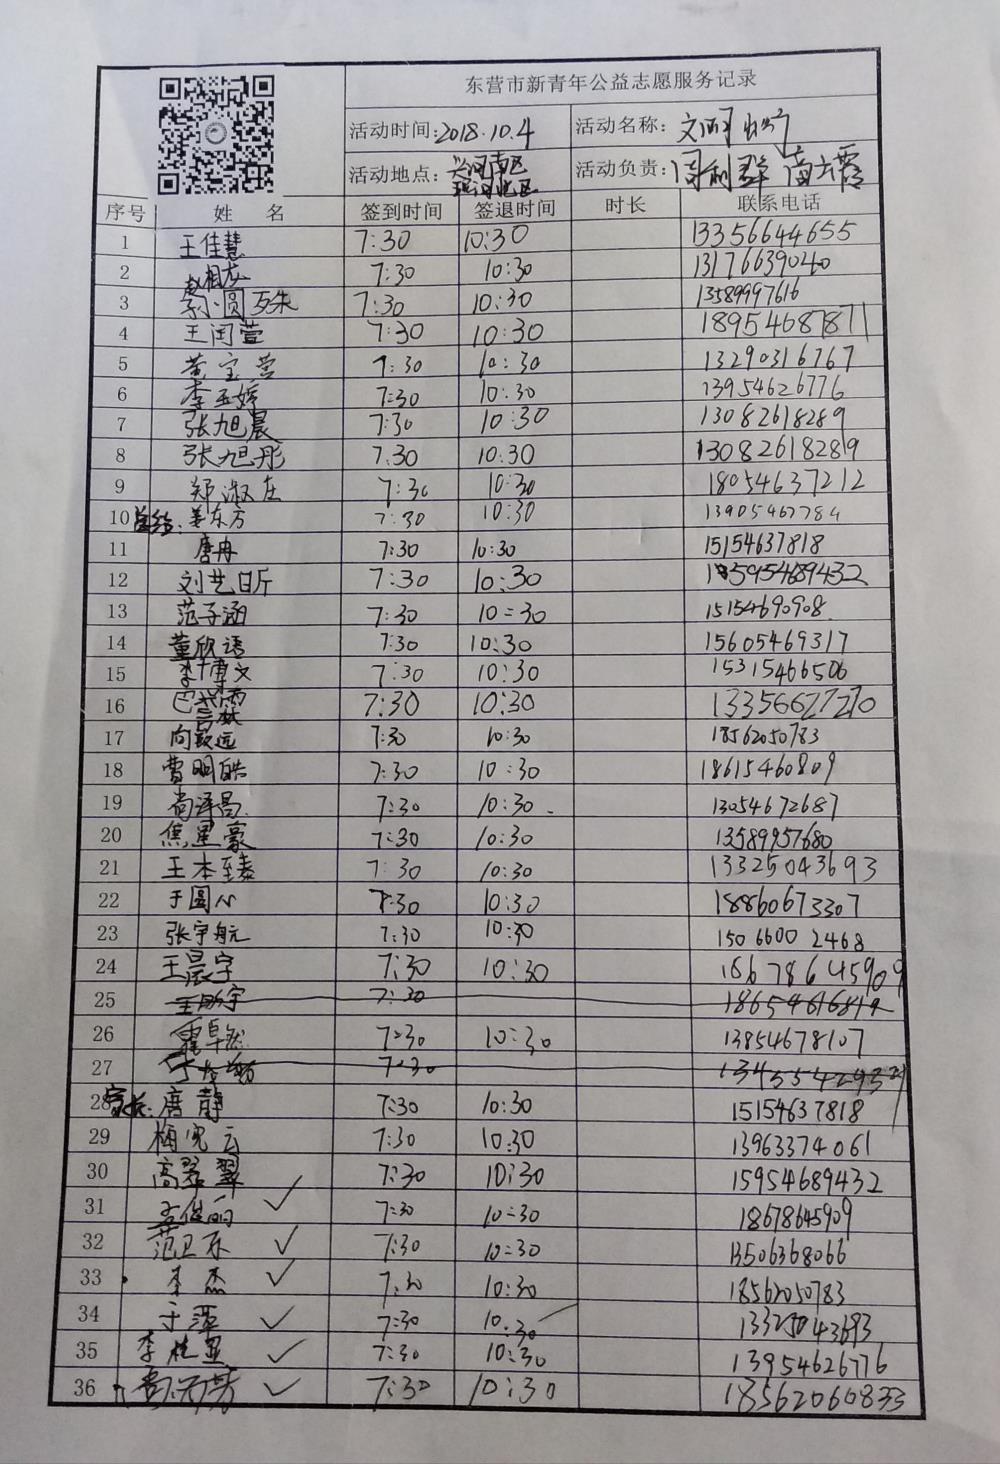 东营市新青年公益志愿服务记录
活动时间:2018.10.4 活动名称:文明
活动地点: 活动负责:周利群 苗云霞
序号 姓名 签到时间 签退时间 时长 联系电话
1 王佳慧 7:30 10:30 13356644655
2 赵相龙 7:30 10:30 13176639040
3 7:30 10:30 13589997616
4 王闰萱 7:30 10:30 18954687811
5 黄宝莹 7:30 10:30 13290316767
6 李玉婷 7:30 10:30 13954626776
7 张旭晨 7:30 10:30 13082618289
8 张旭彤 7:30 10:30 13082618289
9 郑淑 7:30 10:30 18054637212
10 姜东方 7:30 10:30 13905467784
11 唐冉 7:30 10:30 15154637818
12 刘艺昕 7:30 10:30 15954689432
13 范子涵 7:30 10:30 15154690908
14 董欣语 7:30 10:30 15605469317
15 李博文 7:30 10:30 15315466506
16 7:30 10:30 13356627270
17 向致远 7:30 10:30 18562050783
18 曹明皓 7:30 10:30 18615460809
19 尚泽昌 7:30 10:30 13054672687
20 焦星豪 7:30 10:30 13589957680
21 王本至臻 7:30 10:30 13325043693
22 于圆心 7:30 10:30 18860673307
23 张宇航 7:30 10:30 15066002468
24 王晨宇 7:30 10:30 18678645909
25 7:30
26 7:30 10:30 13854678107
27 7:30
28 家长:唐静 7:30 10:30 15154637818
29 梅 云 7:30 10:30 13963374061
30 高翠翠 7:30 10:30 15954689432
31 孟俊丽 7:30 10:30 18678645909
32 范卫 7:30 10:30 13506368066
33 李杰 7:30 10:30 18562050783
34 于萍 7:30 10:30 13325043693
35 李桂 7:30 10:30 13954626776
36 7:30 10:30 18562060833